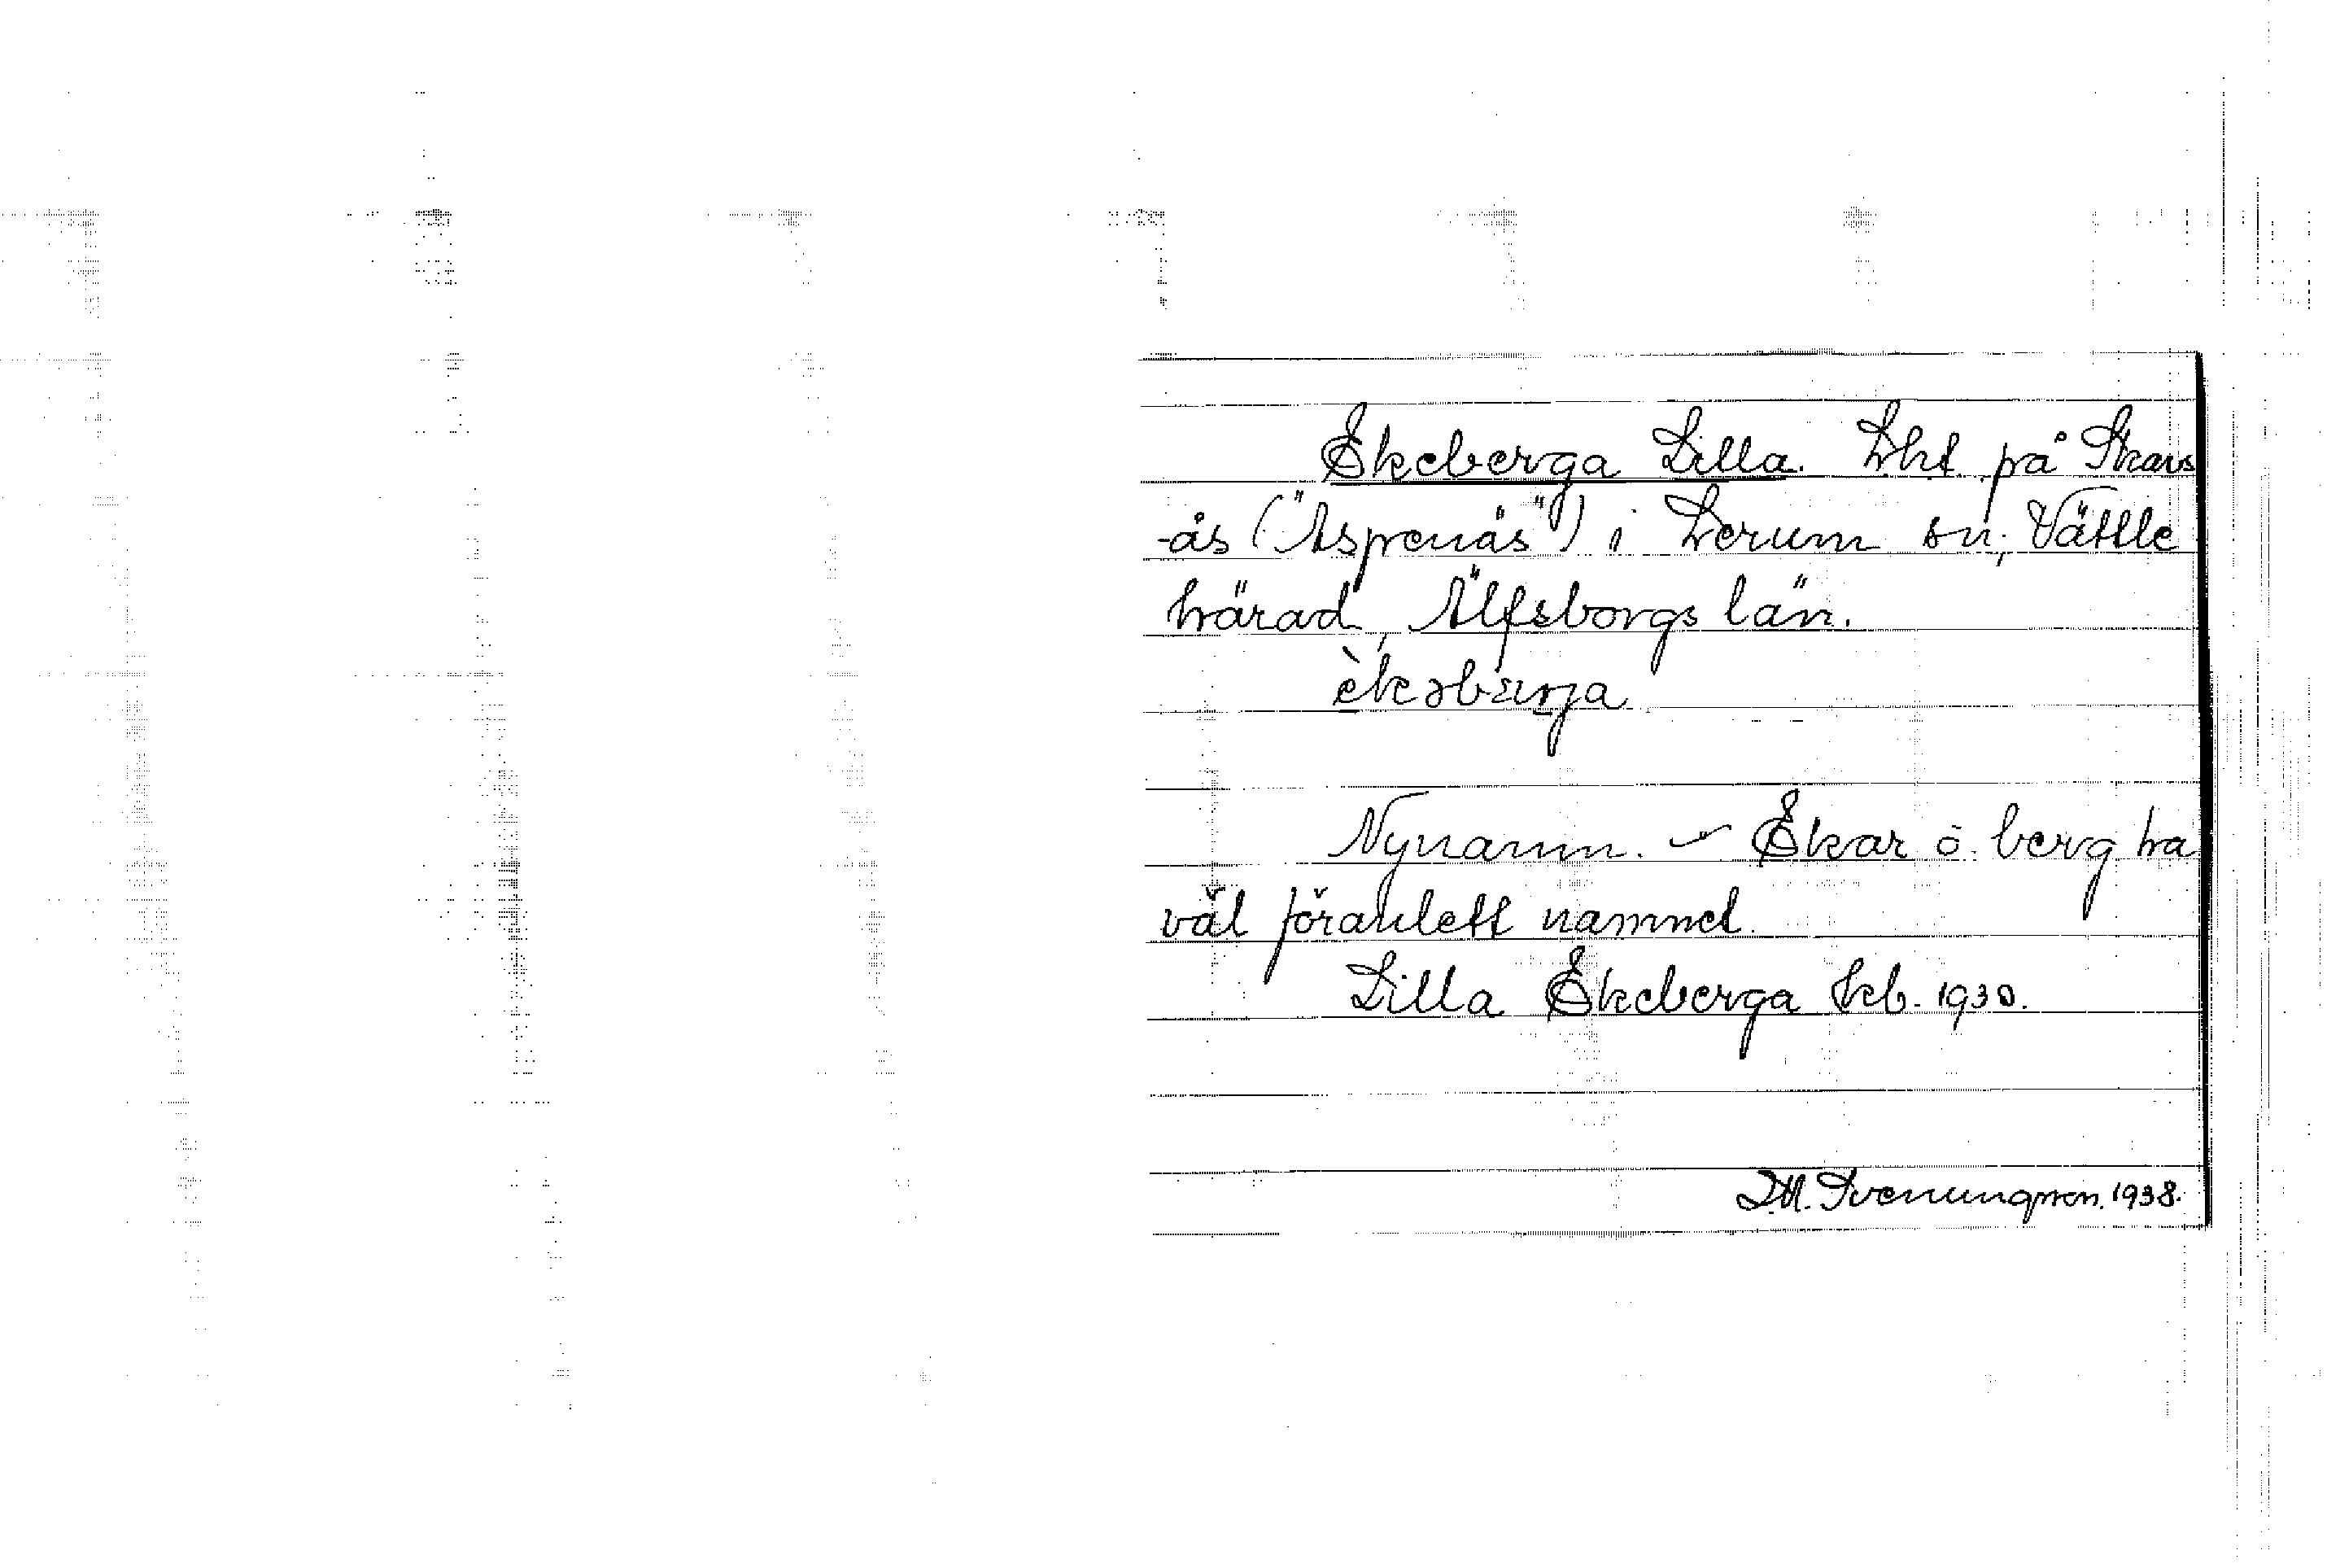 Ekeberga Lilla. Lht på Stravs
-ås ("Aspenäs") i Lerum sn, Vättle
härad, Älfsborgs län.
èkəbærja
Nynamn. - Ekar o. berg ha
väl föranlett namnet.
Lilla Ekeberga Jeb. 1930.
D.M. Svenungsson. 1938.